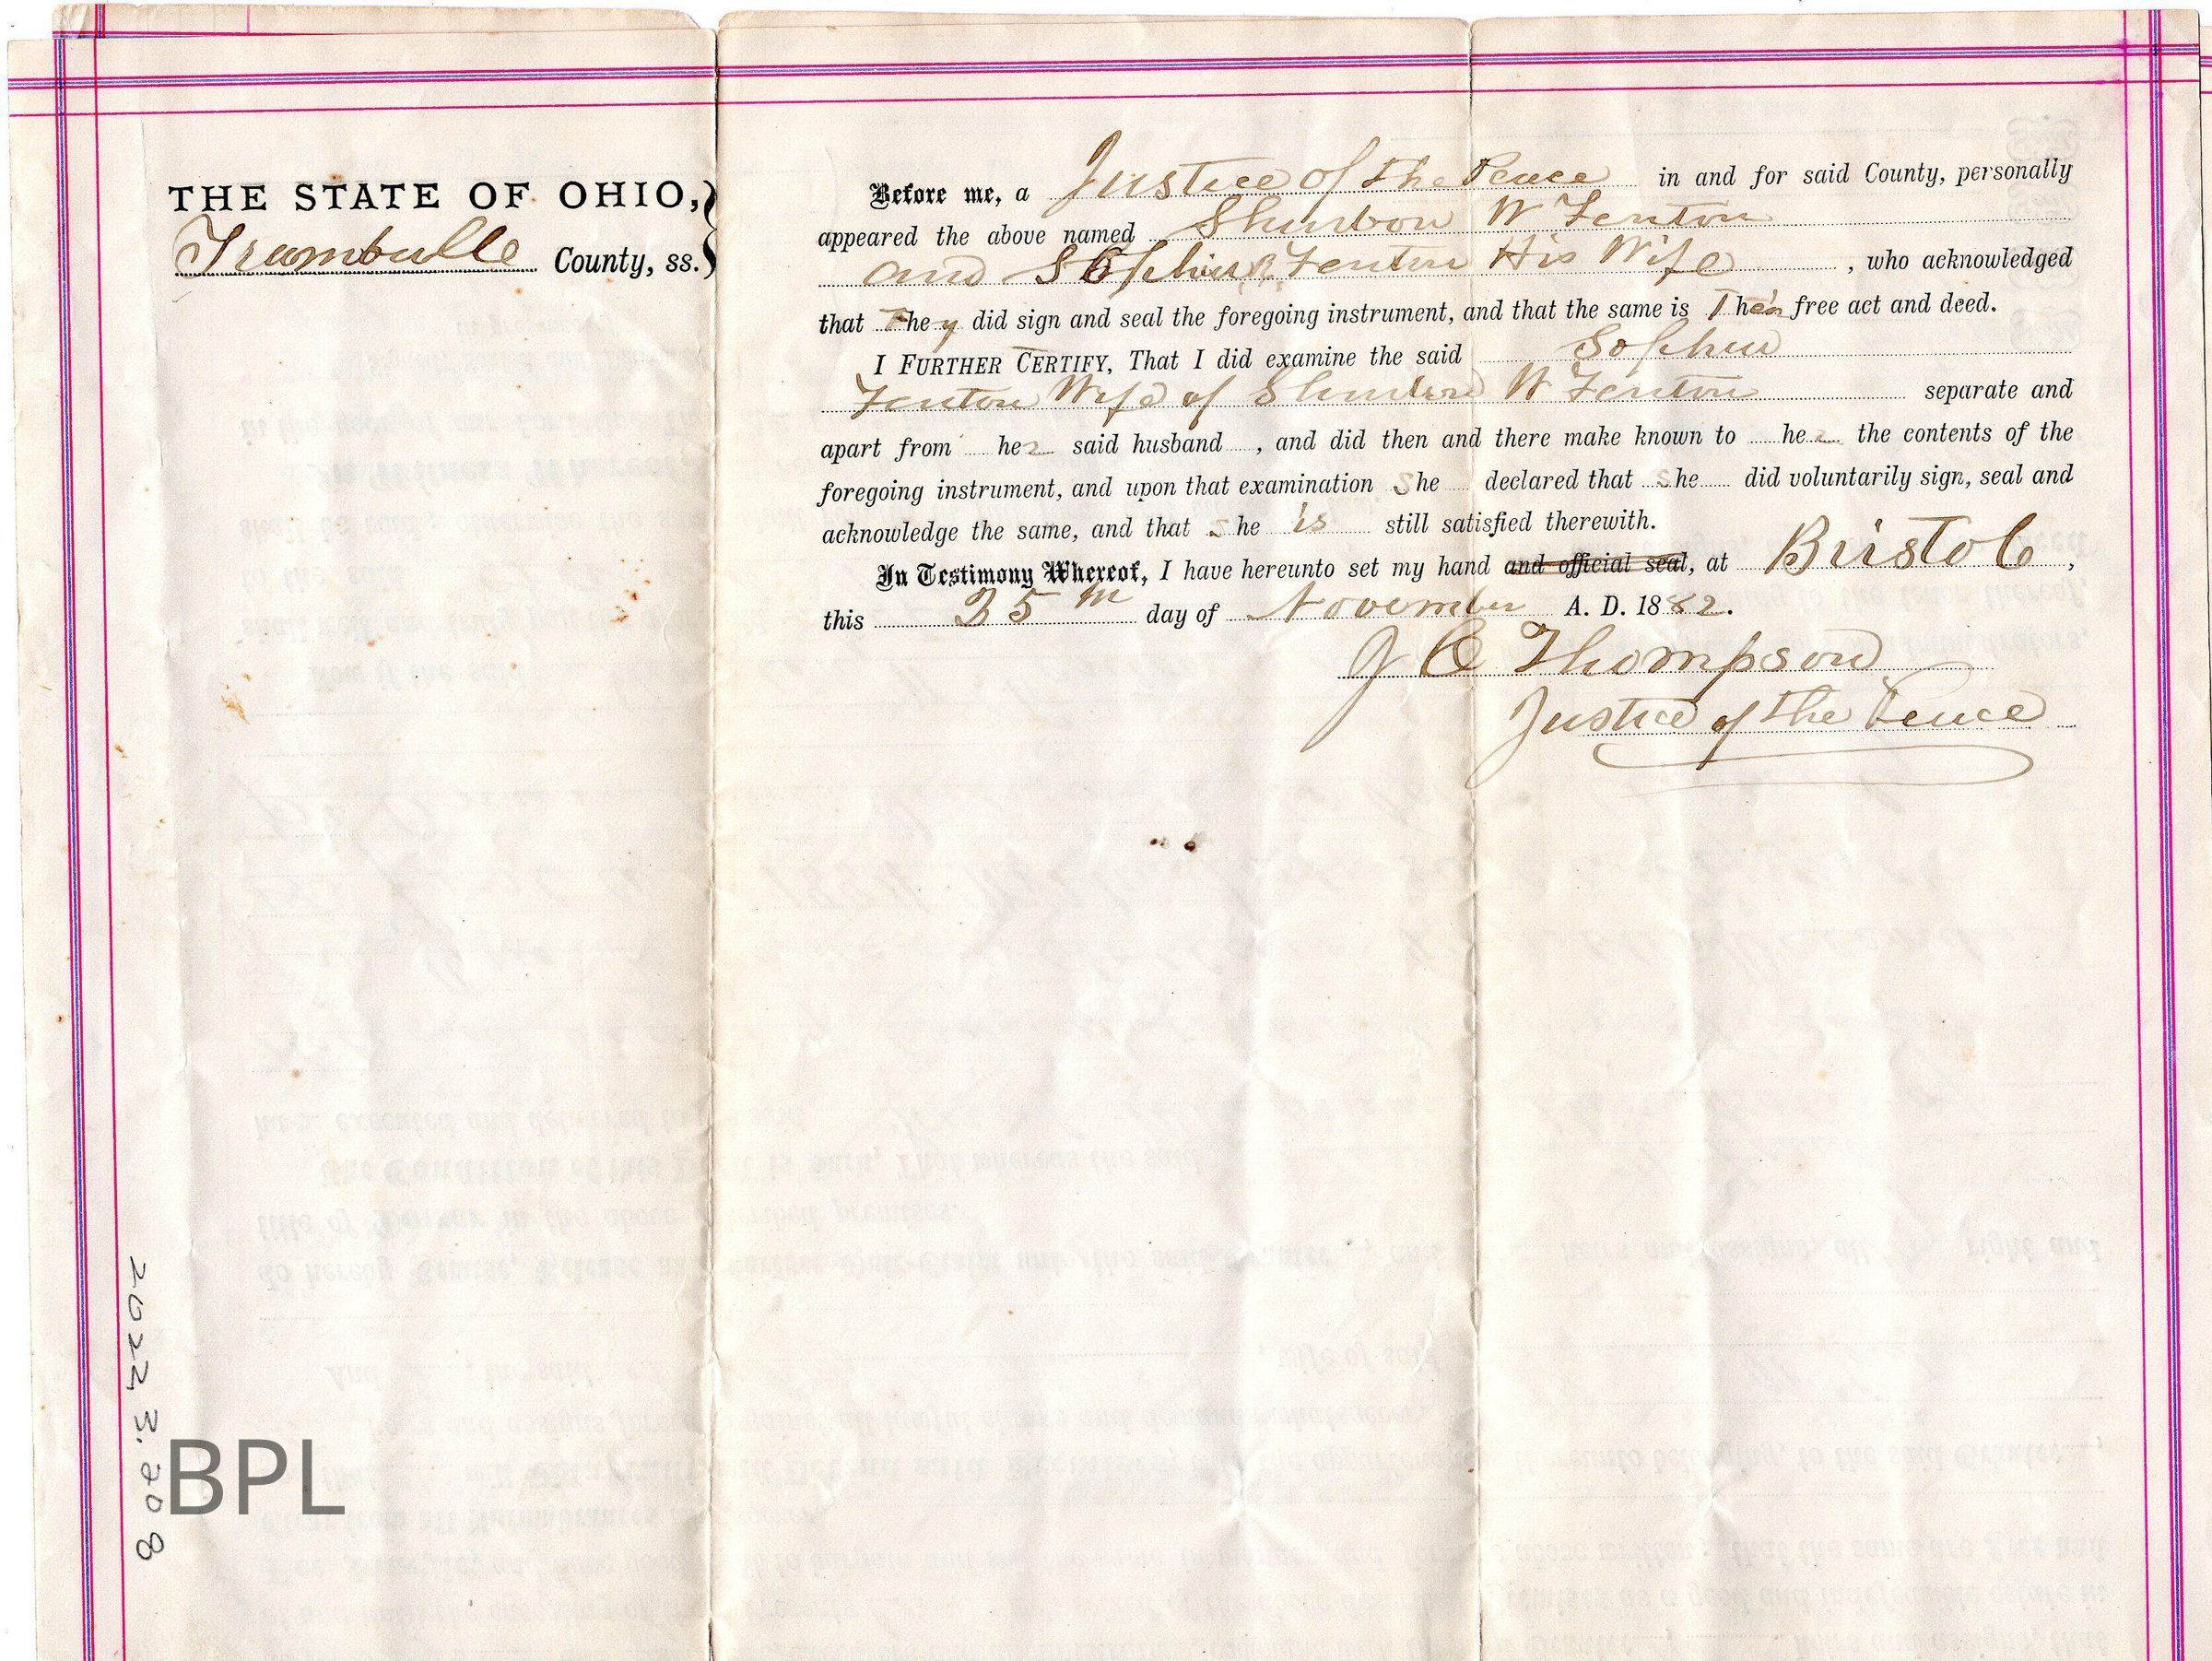 THE STATE OF OHIO,
Trumbull County, ss.
Before me, a Justice of the Peace in and for said County, personally
appeared the above named W Fenton
and Fenton His Wife, who acknowledged
that They did sign and seal the foregoing instrument, and that the same is Their free act and deed.
I FURTHER CERTIFY, That I did examine the said
Fenton Wife of W Fenton separate and
apart from her said husband, and did then and there make known to her the contents of the
foregoing instrument, and upon that examination She declared that She did voluntarily sign, seal and
acknowledge the same, and that she is still satisfied therewith.
In Testimony Whereof, I have hereunto set my hand and official seal, at Bristol,
this 25th day of November A. D. 1882.
J C Thompson
Justice of the Peace
2022.3.208
BPL